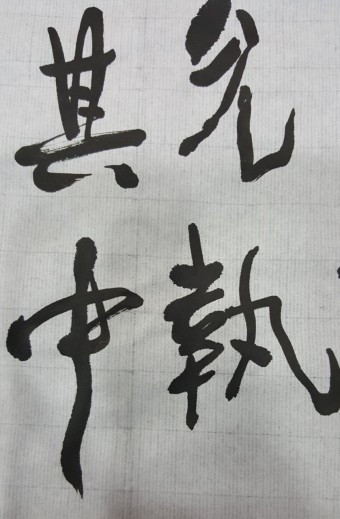 允執
其中